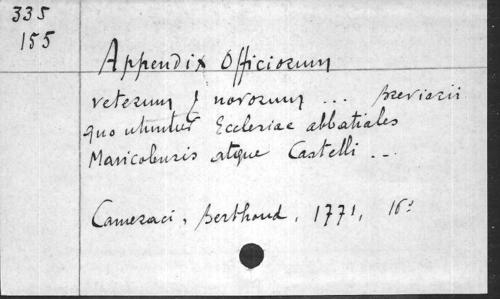 335
155
Appendix Officiorum
veterum & novorum ... Breviarii
quo utuntur Ecclesiae abbatiales
Maricolensis atque Castelli ...
Cameraci, Berthoud, 1771, 16º